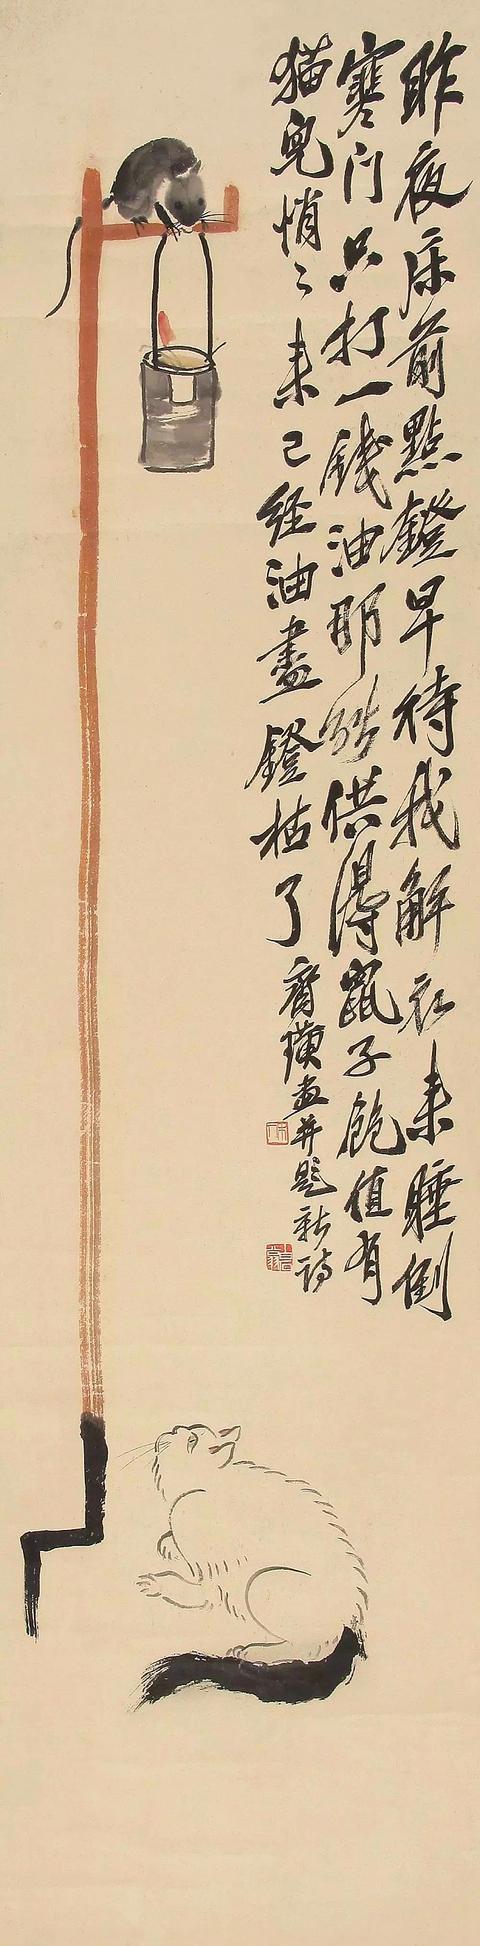 昨夜床前點鐙早待我解衣来睡倒
寒门只打一錢油那能供得鼠子飽值有
猫兒悄〻来已经油盡鐙枯了
齊璜画并題新詩
木人